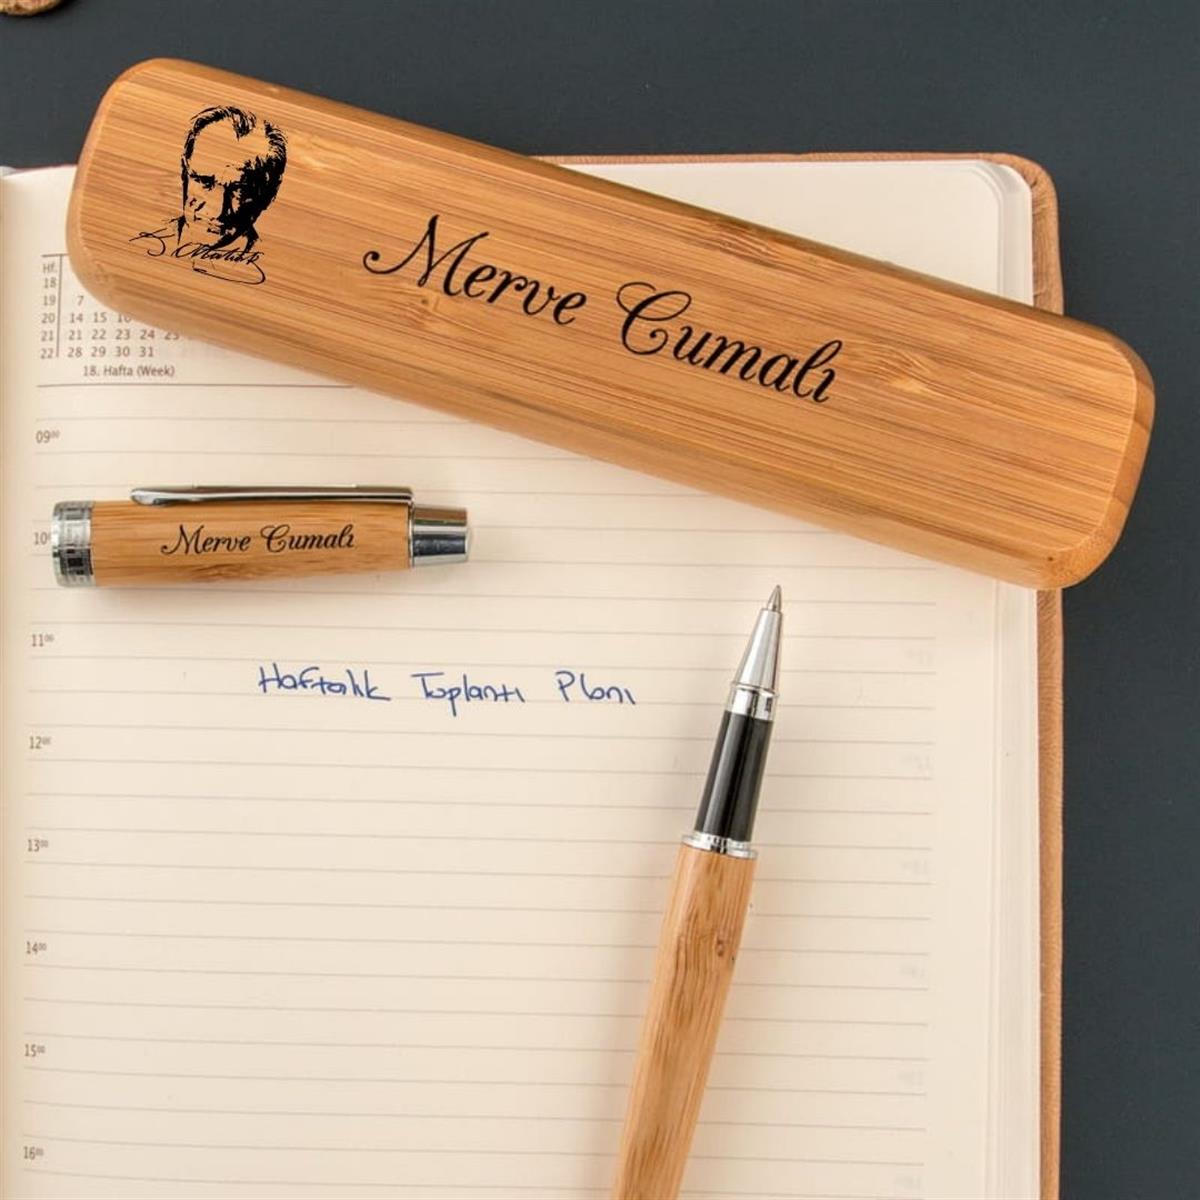 K. Atatürk
Merve Cumalı
Hf.
18
19 7
20 14 15 16
21 21 22 23 24 25
22 28 29 30 31
18. Hafta (Week)
09⁰⁰
Merve Cumalı
10
11⁰⁰
Haftalık Toplantı Planı
12⁰⁰
13⁰⁰
14⁰⁰
15⁰⁰
16⁰⁰